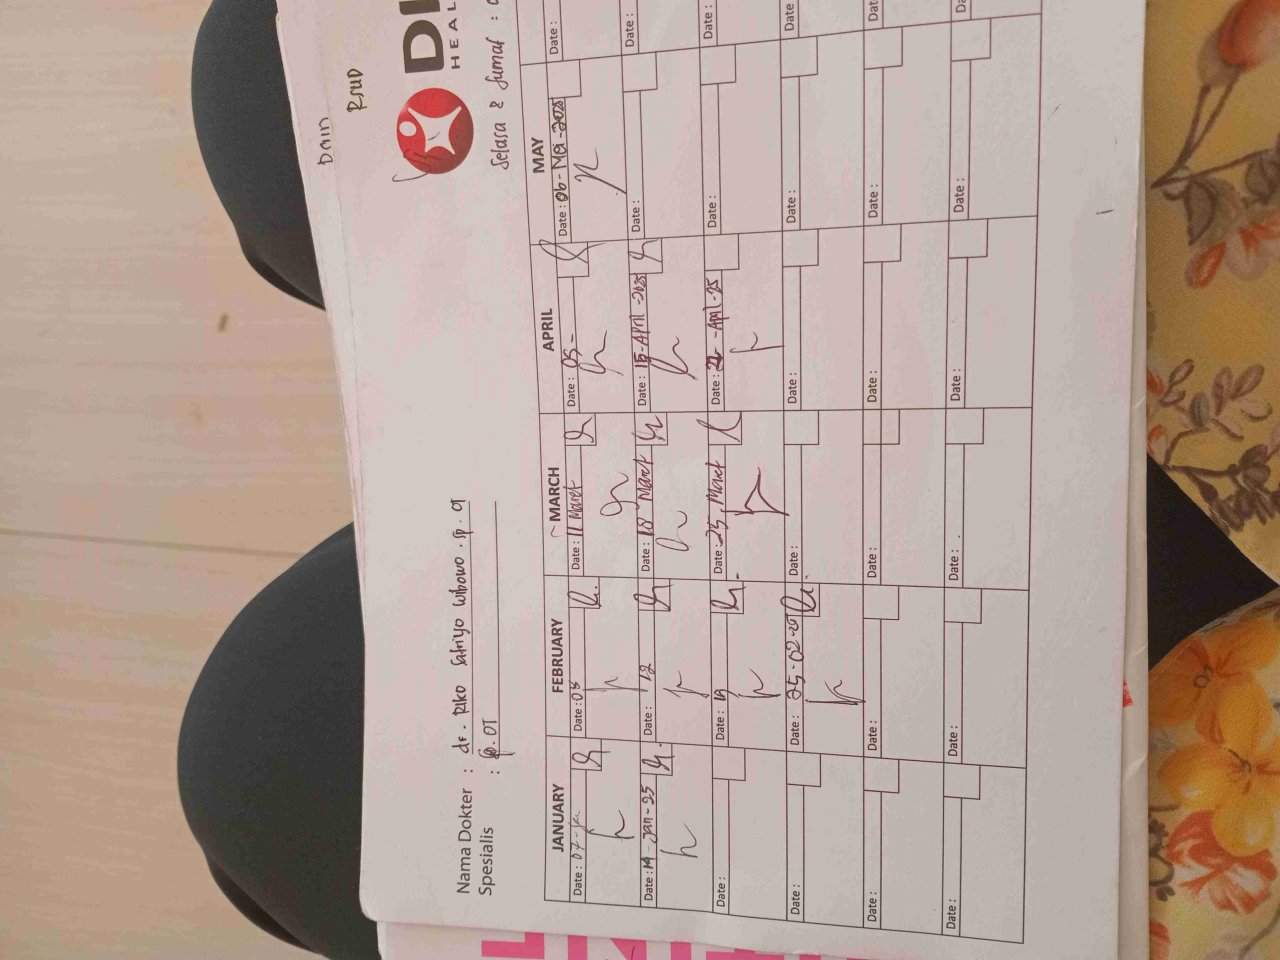 Dain
RSUD
DI
HEAL
Selasa & Jumat :
Nama Dokter : dr. Riko Satriyo Wibowo . Sp. OT
Spesialis : Sp. OT
JANUARY FEBRUARY MARCH APRIL MAY
Date : 07-Ja Date : 05 Date : 11 Maret Date : 05 - Date : 06-Mei-2025 Date :
Date : 14-Jan-25 Date : 12 Date : 18 Maret Date : 15-April-2025 Date : Date :
Date : Date : 19 Date : 25 Maret Date : 22-April-25 Date : Date :
Date : Date : 25-02-25 Date : Date : Date : Date :
Date : Date : Date : Date : Date : Dat
Date : Date : Date : Date : Date : Da